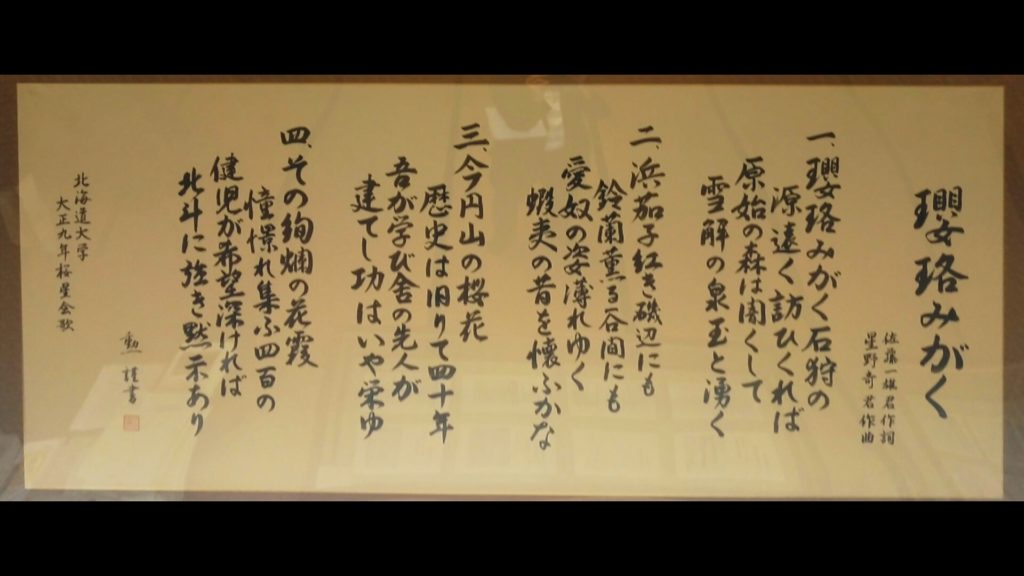 瓔珞みがく
佐藤一雄君作詞
星野奇君作曲
一、瓔珞みがく石狩の
源遠く訪ひくれば
原始の森は闇くして
雪解の泉玉と湧く
二、浜茄子紅き磯辺にも
鈴蘭薫る谷間にも
愛奴の姿薄れゆく
蝦夷の昔を懐ふかな
三、今円山の桜花
歴史は旧りて四十年
吾が学び舎の先人が
建てし功はいや栄ゆ
四、その絢爛の花霞
憧憬れ集ふ四百の
健児が希望深ければ
北斗に強き黙示あり
北海道大学
大正九年桜星会歌
勲謹書